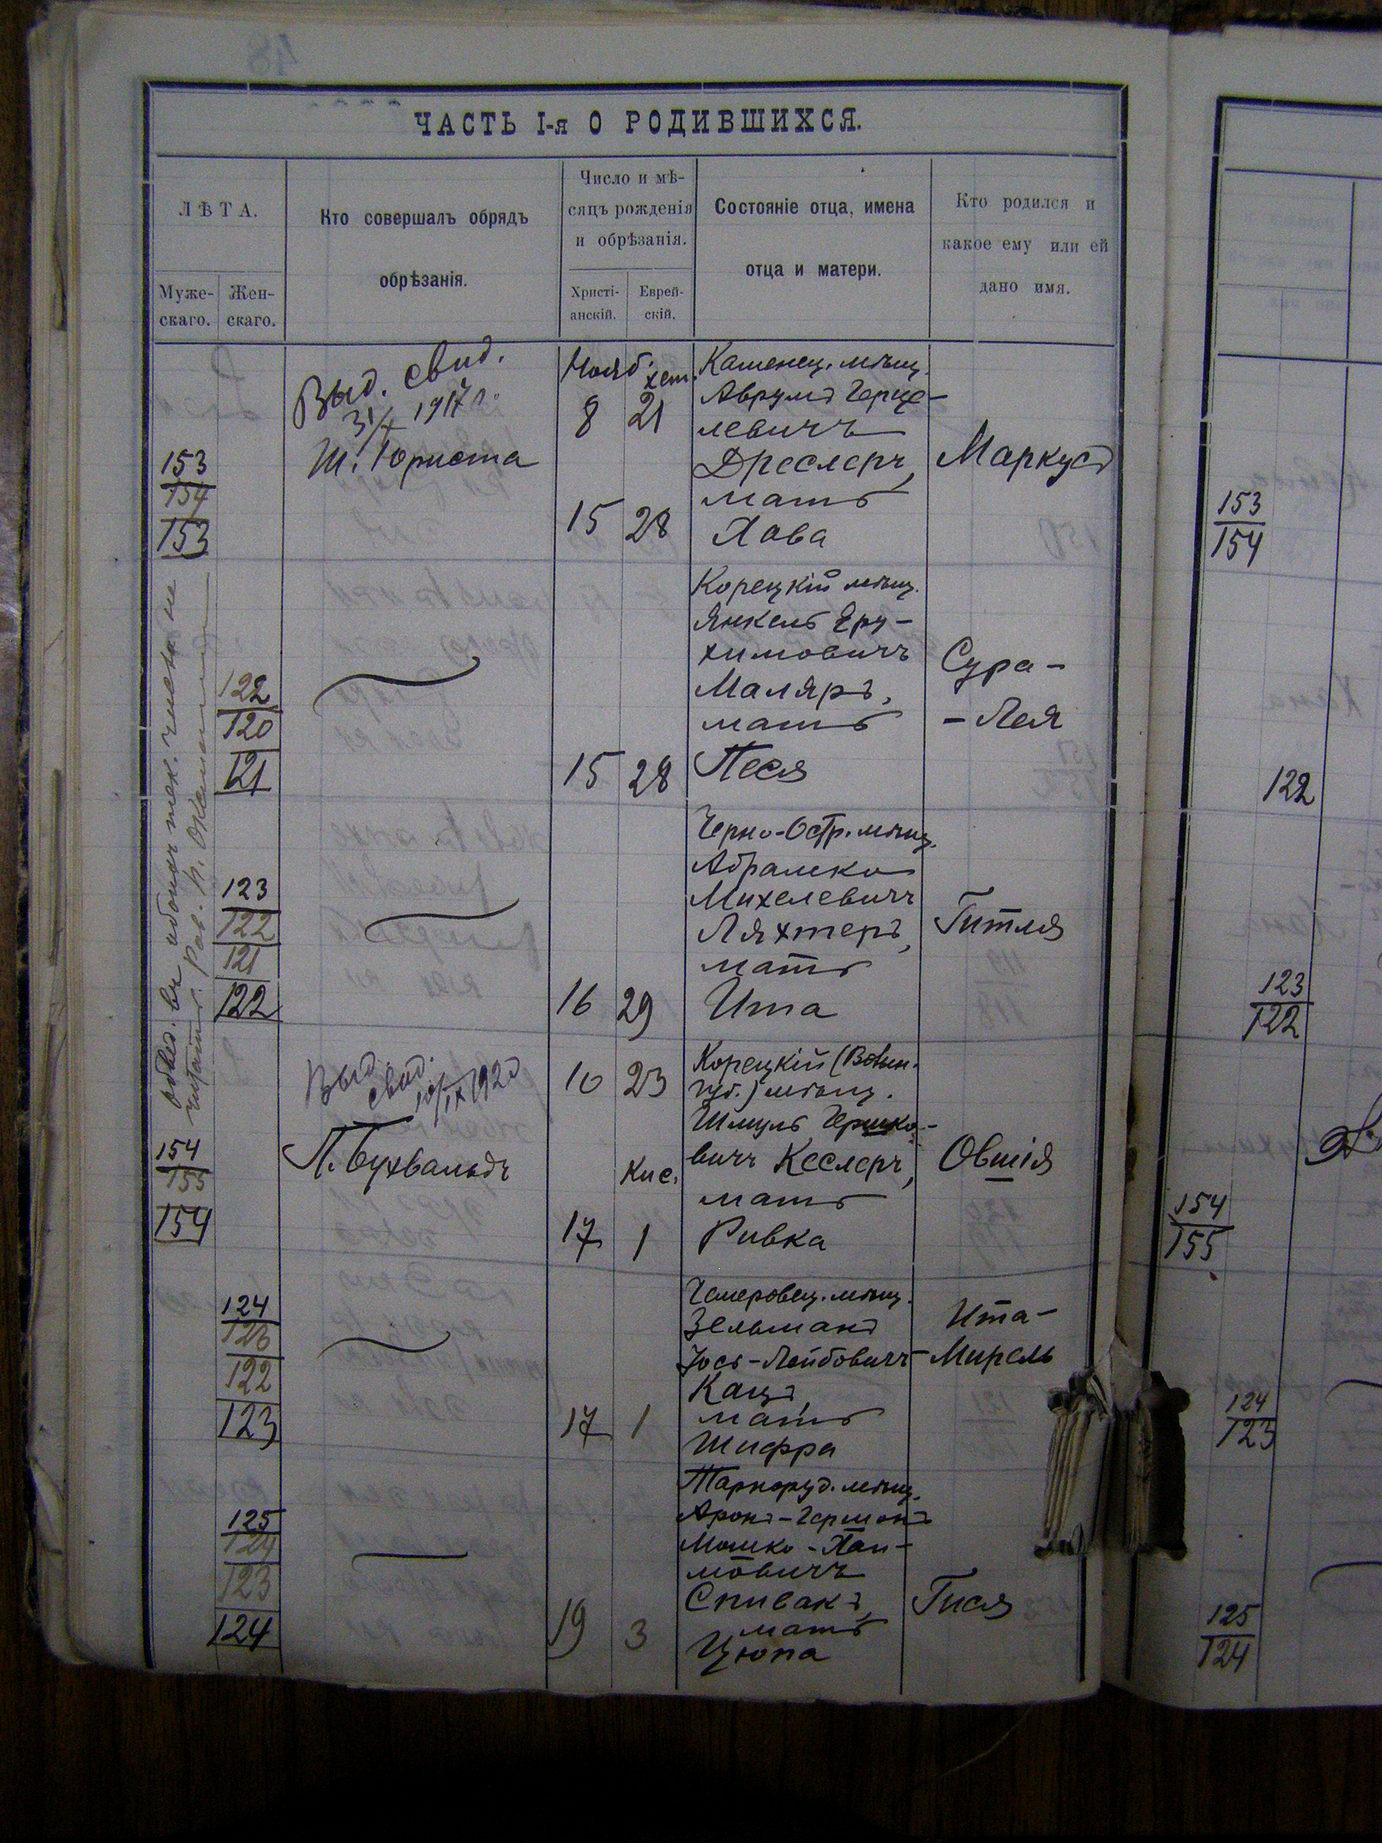 ЧАСТЬ I-я О РОДИВШИХСЯ.
ЛѢТА.
Муже-
скаго.
Жен-
скаго.
Кто совершалъ обрядъ
обрѣзанія.
Число и мѣ-
сяцъ рожденія
и обрѣзанія.
Христі-
анскій.
Еврей-
скій.
Состояніе отца, имена
отца и матери.
Кто родился и
какое ему или ей
дано имя.
153
154
153
Выд. свид.
31/X 1917 г.
Ш. Юриста
Нояб. хеш.
8 21
15 28
Каменец. мѣщ.
Аврумъ Герце-
левичъ
Дреслеръ,
мать
Хова
Маркусъ
122
120
121
15 28
Корецкій мѣщ.
Янкель Еру-
химовичъ
Маляръ,
мать
Песя
Сура-
-Лея
123
122
121
122
16 29
Черно-Остр. мѣщ.
Абрамко
Михелевичъ
Ляхтеръ,
мать
Ита
Гитля
154
155
154
Выд.
свид.
10/IX 1920
Л. Бухвальдъ
10 23
Кис.
17 1
Корецкій (Волын.
губ.) мѣщ.
Шмуль Гершко-
вичъ Кеслеръ,
мать
Ривка
Овшія
124
123
122
123
17 1
Чемеровец. мѣщ.
Зельманъ
Іось-Лейбовичъ
Кацъ,
мать
Шифра
Ита-
Мирель
125
124
123
124
19 3
Тарноруд. мѣщ.
Аронъ-Германъ
Мошко-Хаи-
мовичъ
Спивакъ,
мать
Цюпа
Гися
153
154
122
123
122
154
155
124
123
125
124